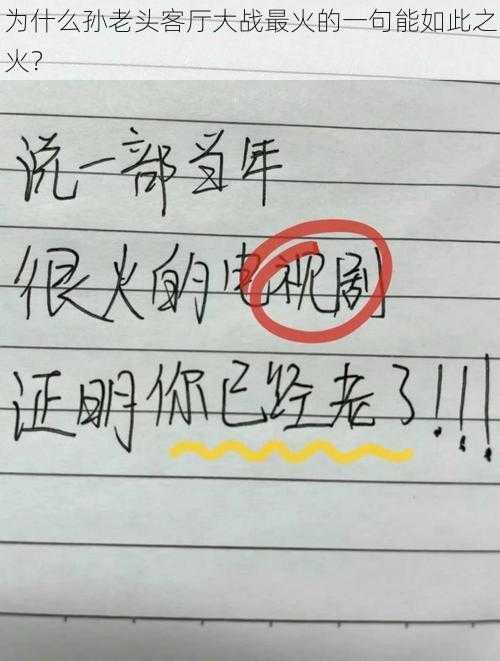 为什么孙老头客厅大战最火的一句能如此之
火？
说一部当年
很火的电视剧
证明你已经老了!!!